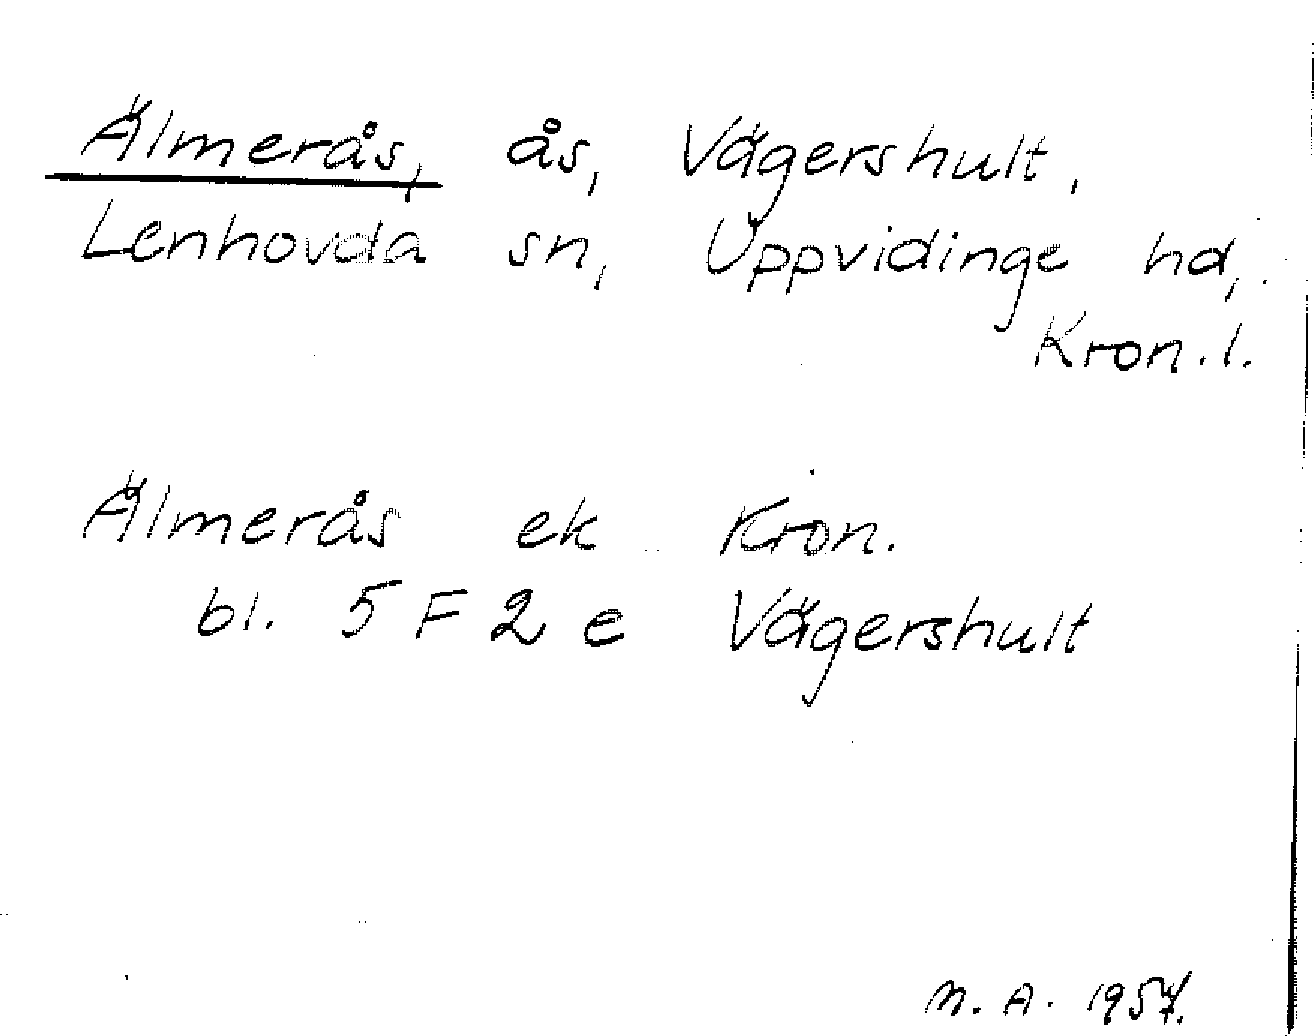 Älmerås, ås, Vägershult,
Lenhovda sn, Uppvidinge hd,
Kron. l.
Älmerås ek Kron.
bl. 5 F 2 e Vägershult
M. A. 1957.